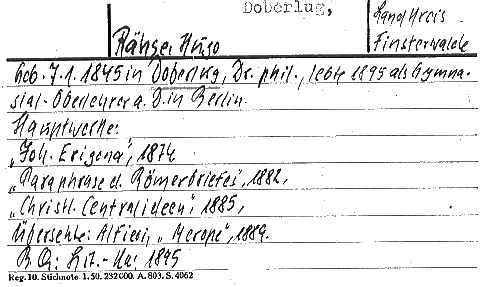 Doberlug,
Land Kreis
Finsterwalde
Rähse, Hugo
Geb. 7.1.1845 in Doberlug, Dr. phil., lebte 1895 als Gymna-
sial-Oberlehrer a. D. in Berlin.
Hauptwerke:
„Joh. Erigena", 1874
„Paraphrase d. Römerbriefes", 1882,
„Christl. Centralideen", 1885,
Übersetzte: Alfieri, „Merope", 1889.
B. Q.: Lit.-Ka: 1895
Reg. 10. Stichnote. 1. 50. 232000. A. 803. S. 4062